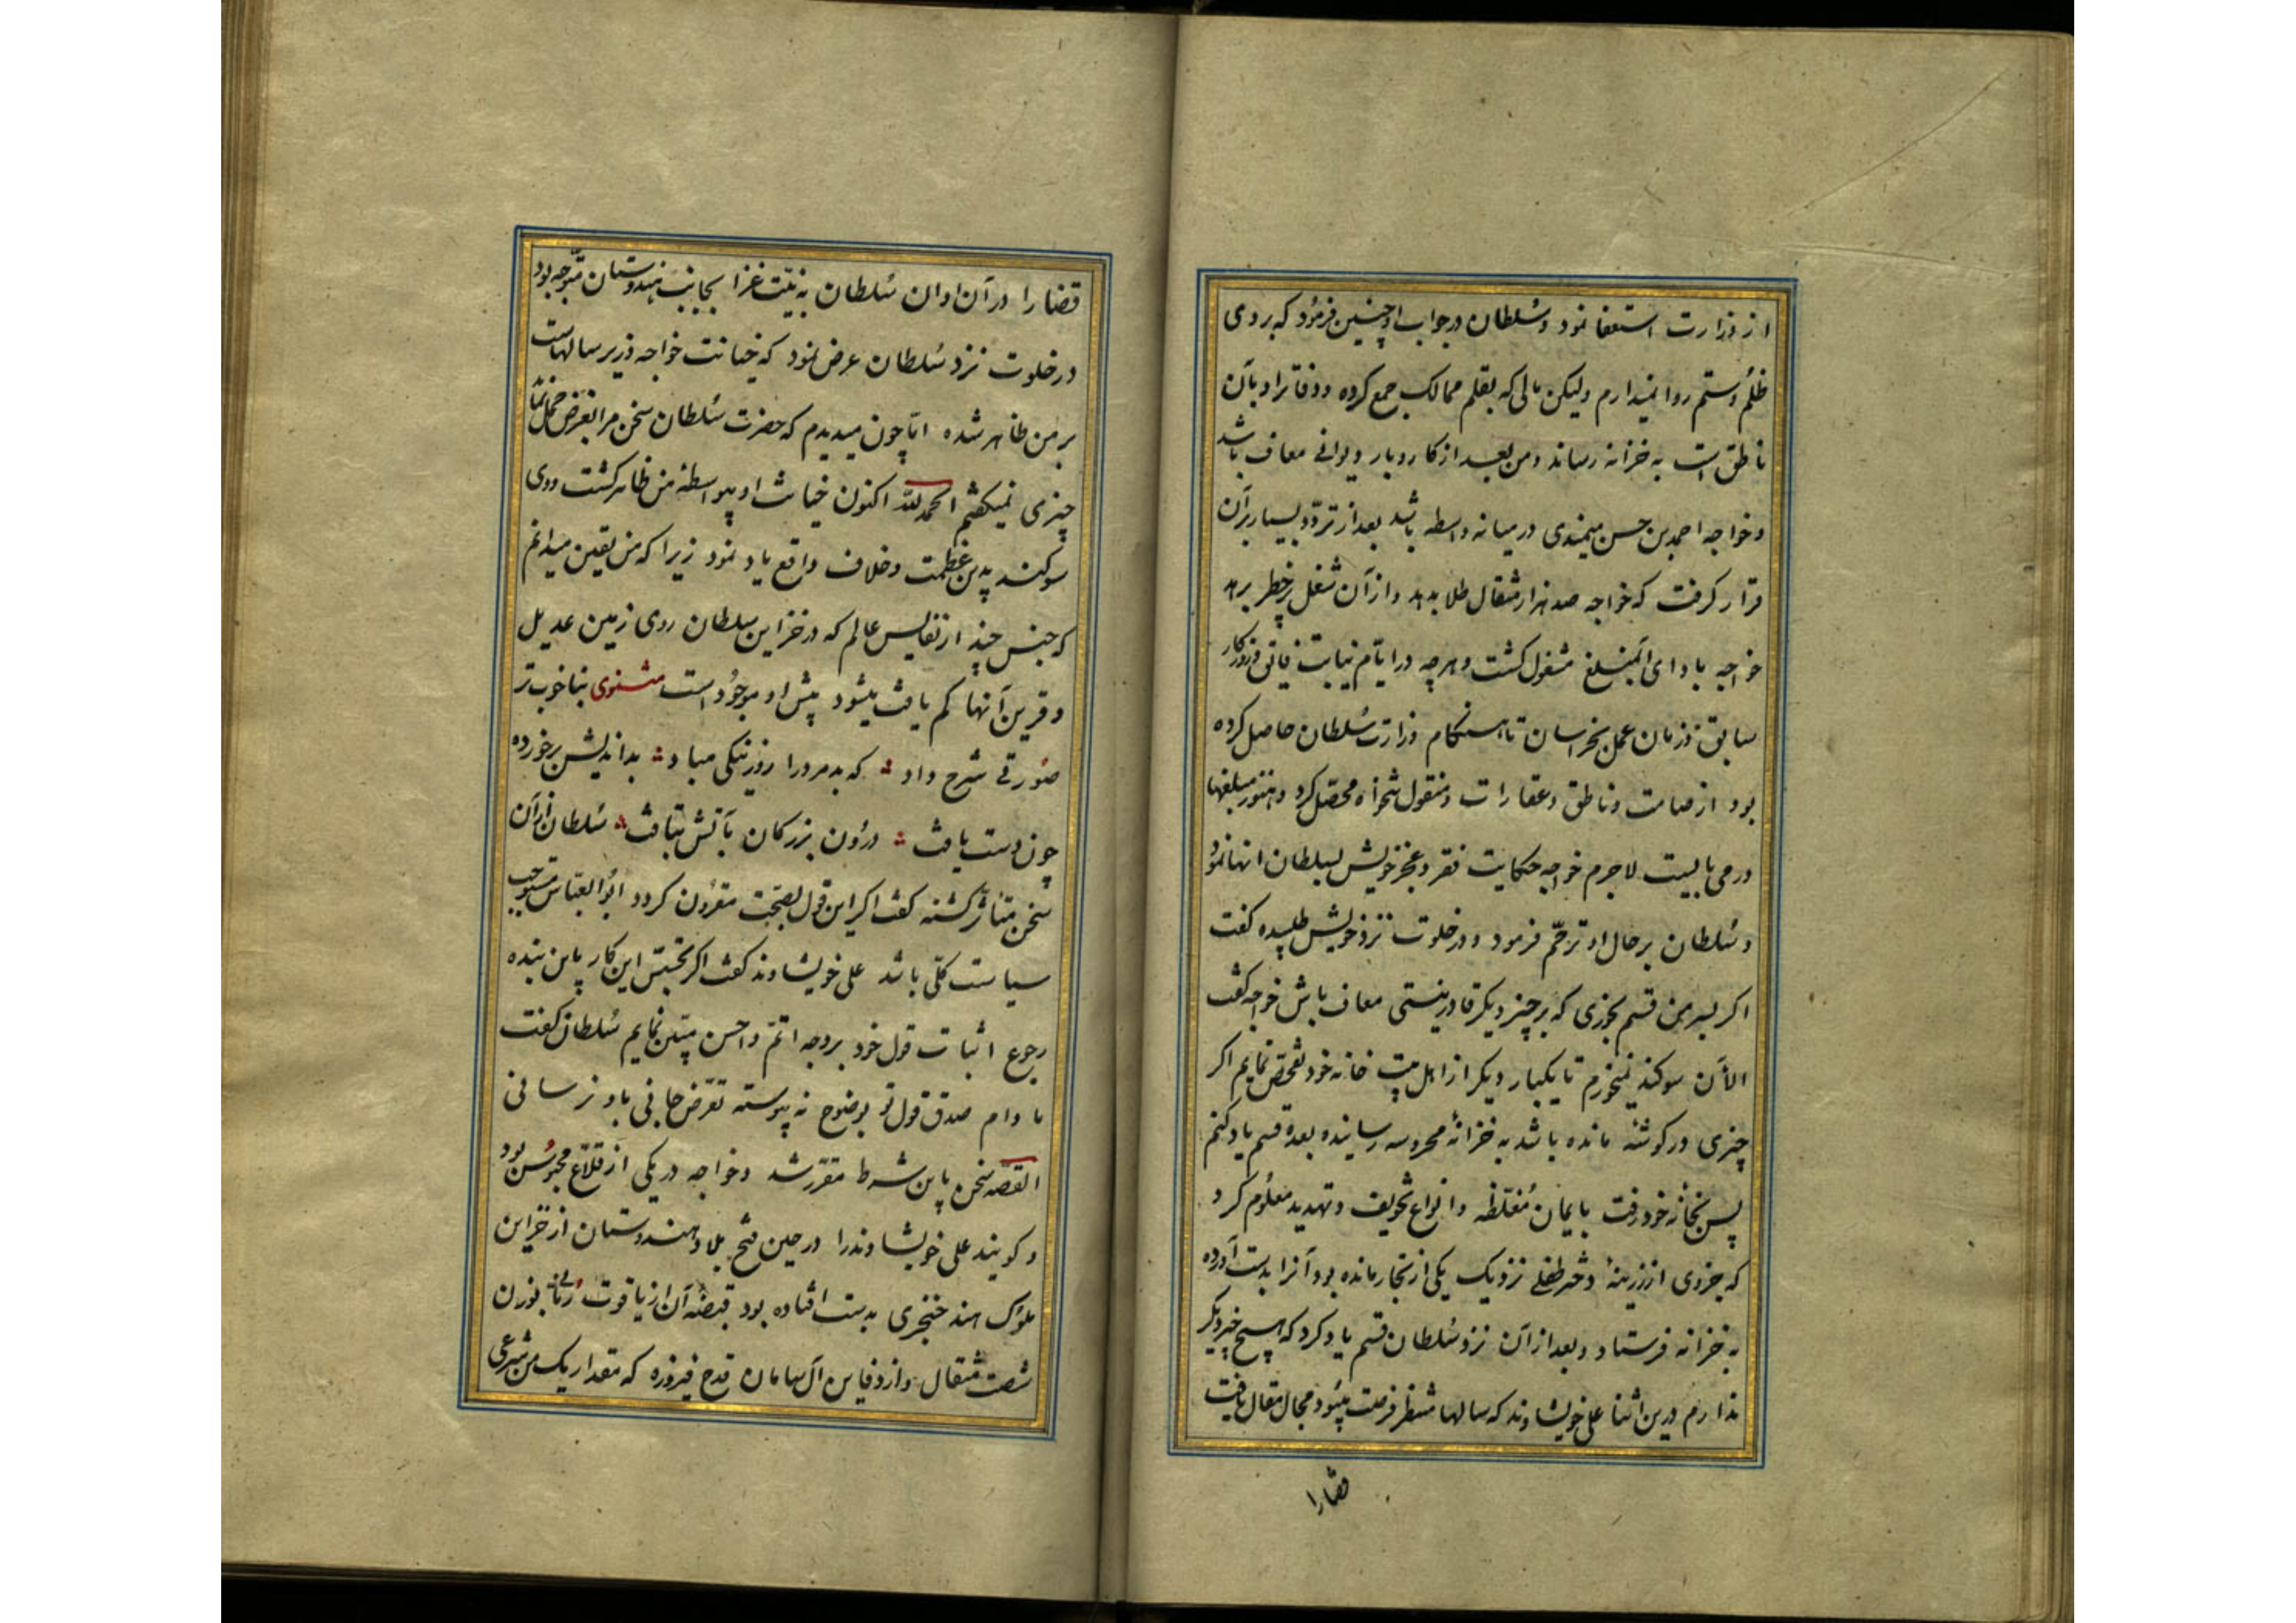 از وزارت استعفا نمود و سلطان در جواب او چنین فرمود که بر وی
ظلم و ستم روا نمیدارم ولیکن مالی که بقلم ممالک جمع کرده و دفاتر او بآن
ناطق است به خزانه رساند و من بعد از کار و بار دیوانی معاف باشد
و خواجه احمد بن حسن میمندی در میانه واسطه باشد بعد از تردد بسیار برآن
قرار گرفت که خواجه صد هزار مثقال طلا بدهد و از آن شغل پرخطر برهد
خواجه با دای آنمبلغ مشغول گشت و هرچه در ایام نیابت فایق و روزگار
سابق و زمان عمل بخراسان تا هنگام وزارت سلطان حاصل کرده
بود از صامت و ناطق و عقارات و منقول شخواه محصل کرد و هنوز مبلغها
در می بایست لاجرم خواجه حکایت فقر و عجز خویش بسلطان انها نمود
و سلطان بر حال او ترحّم فرمود و در خلوت نزد خویش طلبیده گفت
اگر بسر من قسم بخوری که بر چیز دیگر قادر نیستی معاف باش خواجه گفت
الآن سوگند نمیخورم تا یکبار دیگر از اهل بیت خانه خود تفحص نمایم اگر
چیزی در گوشه مانده باشد به خزانهٔ محروسه رسانیده بعده قسم یاد کنم
پس بخانه خود رفت بایمان مُغلّظه و انواع تخویف و تهدید معلوم کرد
که جزوی از زرینهٔ دختر طفلے نزدیک یکی از تجار مانده بود آنرا بدست آورده
به خزانه فرستاد و بعد از آن نزد سلطان قسم یاد کرد که هیچ چیز دیگر
ندارم درین اثنا علی خویشاوند که سالها منتظر فرصت میبود مجال مقال یافت
قضارا
قضا را در آن اوان سُلطان به نیّت غزا بجانب هندوستان متوجه بود
در خلوت نزد سُلطان عرض نمود که خیانت خواجه وزیر سالهاست
بر من ظاهر شده امّا چون میدیدم که حضرت سُلطان سخن مرا بغرض حمل نماید
چیزی نمیگفتم الحمد لله اکنون خیانت او بیواسطهٔ من ظاهر گشت و وی
سوگند بدین عظمت و خلاف واقع یاد نمود زیرا که من یقین میدانم
که جنس چند از نفایس عالم که در خزاین سلطان روی زمین عدیل
و قرین آنها کم یافت میشود پیش او موجود است مثنوی بنا خوب تر
صورتے شرح داد که بد مرد را روز نیکی مباد بداندیش بر خورده
چون دست یافت درون بزرگان بآتش بتافت سُلطان از آن
سخن متاثر گشته گفت اگر این قول بصحت مقرون گردد ابوالعباس مستوجب
سیاست کلّی باشد علی خویشاوند گفت اگر تجسّس این کار باین بنده
رجوع اثبات قول خود بر وجه اتمّ و احسن مبیّن نمایم سُلطان گفت
مادام صدق قول تو بوضوح نه پیوسته تعرّض جانی باو نرسانی
القصّه سخن باین شرط مقرّر شد و خواجه در یکی از قلاع محبوس بود
و گویند علی خویشاوند را در حین فتح بلاد هندوستان از خزاین
ملوک هند خنجری به دست افتاده بود قبضهٔ آن از یاقوت رمّانی بوزن
شصت مثقال و از دفاین آل سامان قدح فیروزه که مقدار یک من شرعی